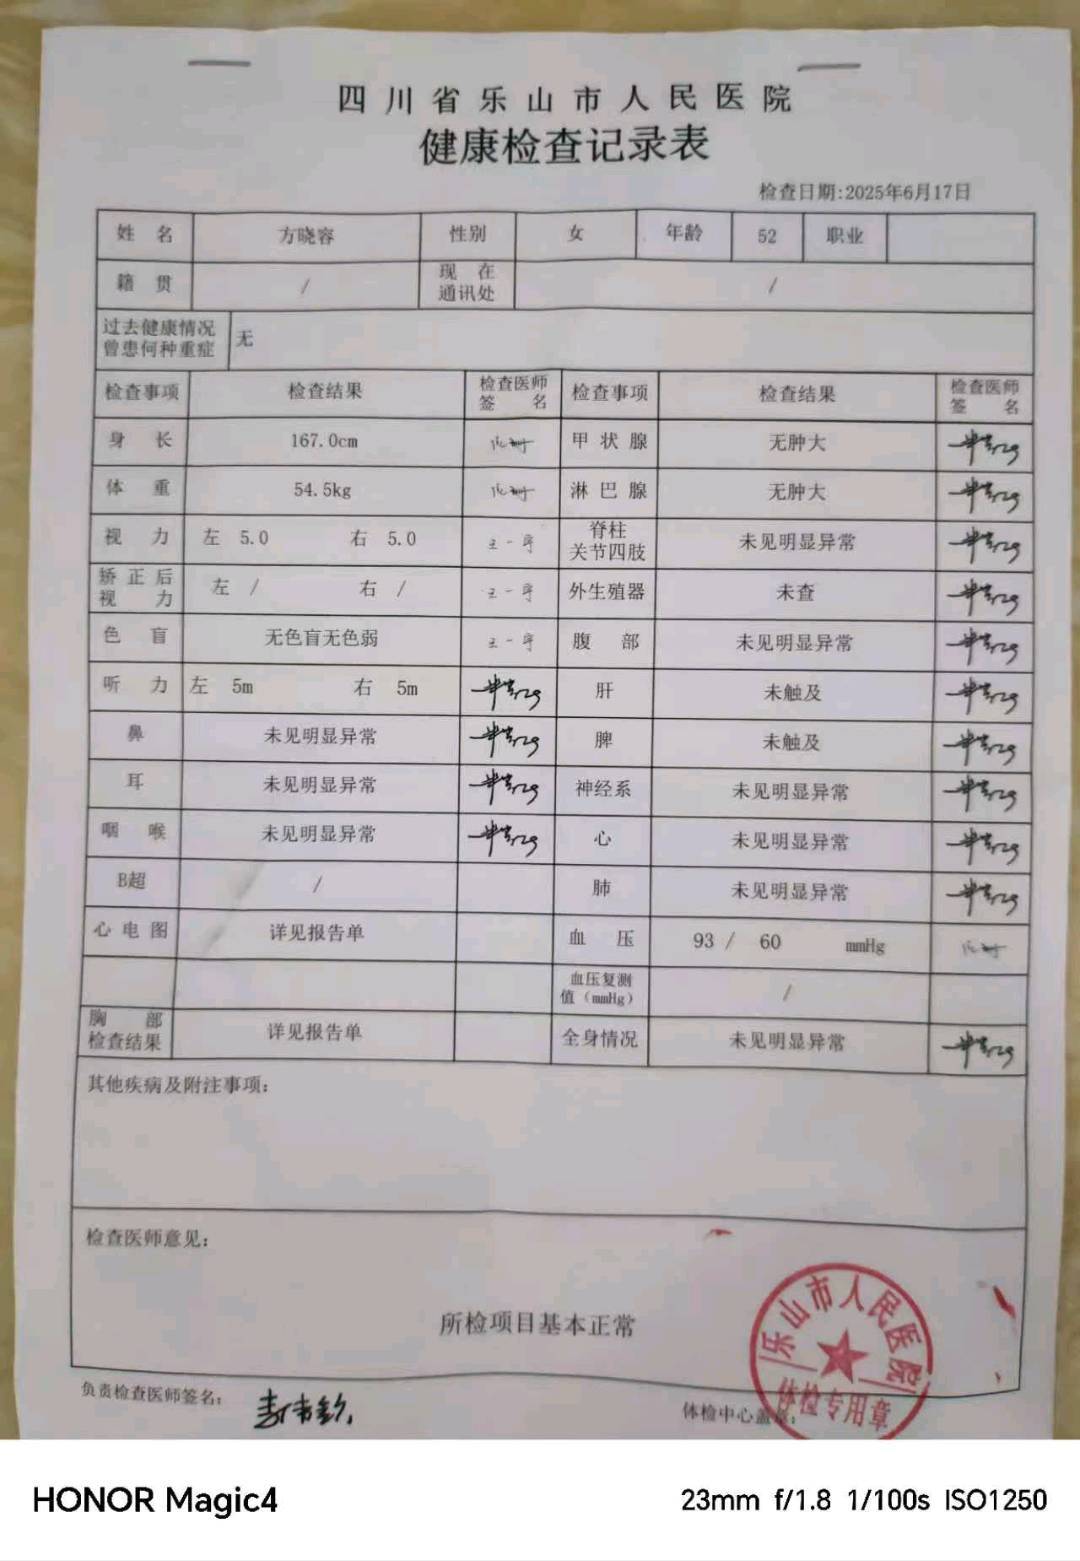 四川省乐山市人民医院
健康检查记录表
检查日期:2025年6月17日
姓 名 方晓容 性别 女 年龄 52 职业
籍 贯 / 现 在 通讯处 /
过去健康情况
曾患何种重症 无
检查事项 检查结果 检查医师签 名 检查事项 检查结果 检查医师签 名
身 长 167.0cm 甲状腺 无肿大
体 重 54.5kg 淋巴腺 无肿大
视 力 左 5.0 右 5.0 脊柱关节四肢 未见明显异常
矫正后视 力 左 / 右 / 外生殖器 未查
色 盲 无色盲无色弱 腹 部 未见明显异常
听 力 左 5m 右 5m 肝 未触及
鼻 未见明显异常 脾 未触及
耳 未见明显异常 神经系 未见明显异常
咽 喉 未见明显异常 心 未见明显异常
B超 / 肺 未见明显异常
心电图 详见报告单 血 压 93 / 60 mmHg
血压复测值（mmHg） /
胸 部检查结果 详见报告单 全身情况 未见明显异常
其他疾病及附注事项：
检查医师意见：
所检项目基本正常
负责检查医师签名：
体检中心盖章：
乐山市人民医院
体检专用章
HONOR Magic4
23mm f/1.8 1/100s ISO1250